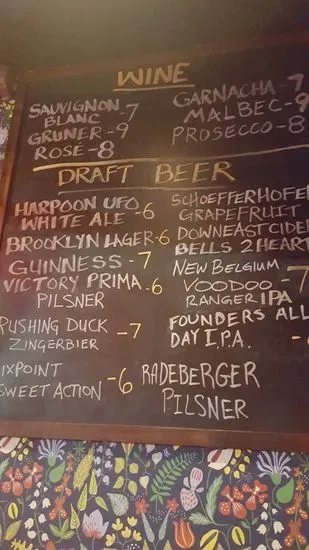 WINE
SAUVIGNON
BLANC -7
GRUNER -9
ROSÉ -8
GARNACHA -7
MALBEC -9
PROSECCO -8
DRAFT BEER
HARPOON UFO
WHITE ALE -6
BROOKLYN LAGER -6
GUINNESS -7
VICTORY PRIMA
PILSNER -6
RUSHING DUCK
ZINGERBIER -7
IXPOINT
SWEET ACTION -6
SCHOEFFERHOFE
GRAPEFRUIT
DOWNEAST CIDE
BELLS 2 HEART
NEW BELGIUM
VOODOO -7
RANGER IPA
FOUNDERS ALL
DAY I.P.A. -
RADEBERGER
PILSNER